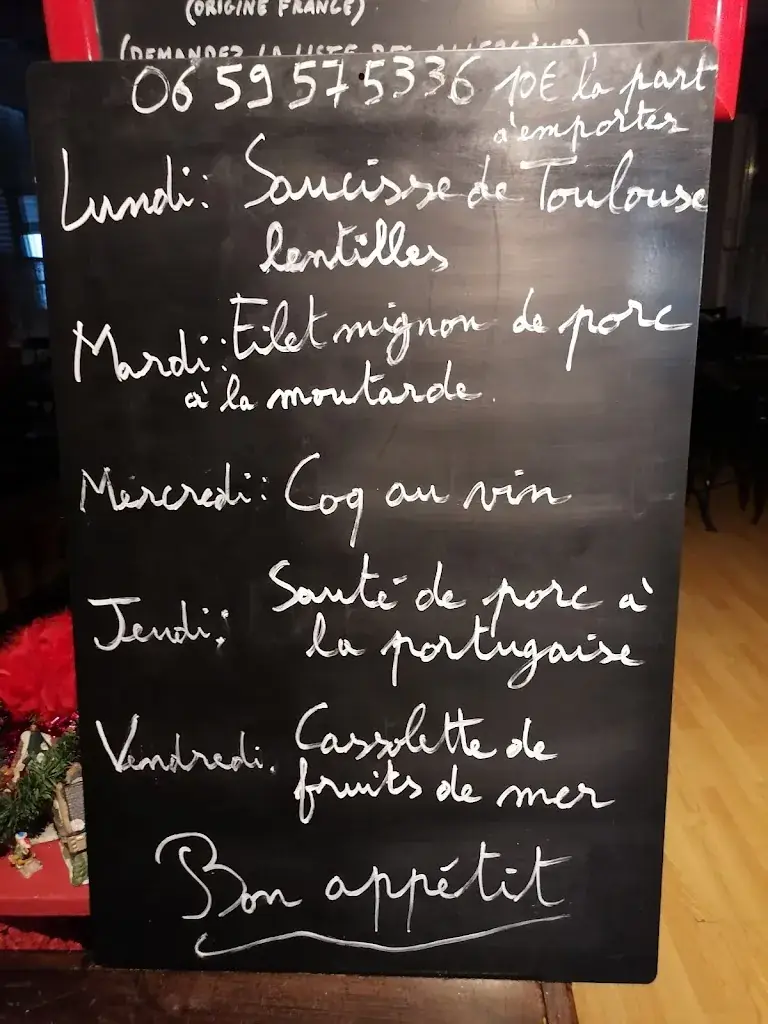 (ORIGINE FRANCE)
(DEMANDEZ LA LISTE DES ALLERGÈNES)
06 59 57 5336 10€ la part
à emporter
Lundi: Saucisse de Toulouse
lentilles
Mardi: Filet mignon de porc
à la moutarde.
Mercredi: Coq au vin
Jeudi: Sauté de porc à
la portugaise
Vendredi. Cassolette de
fruits de mer
Bon appétit